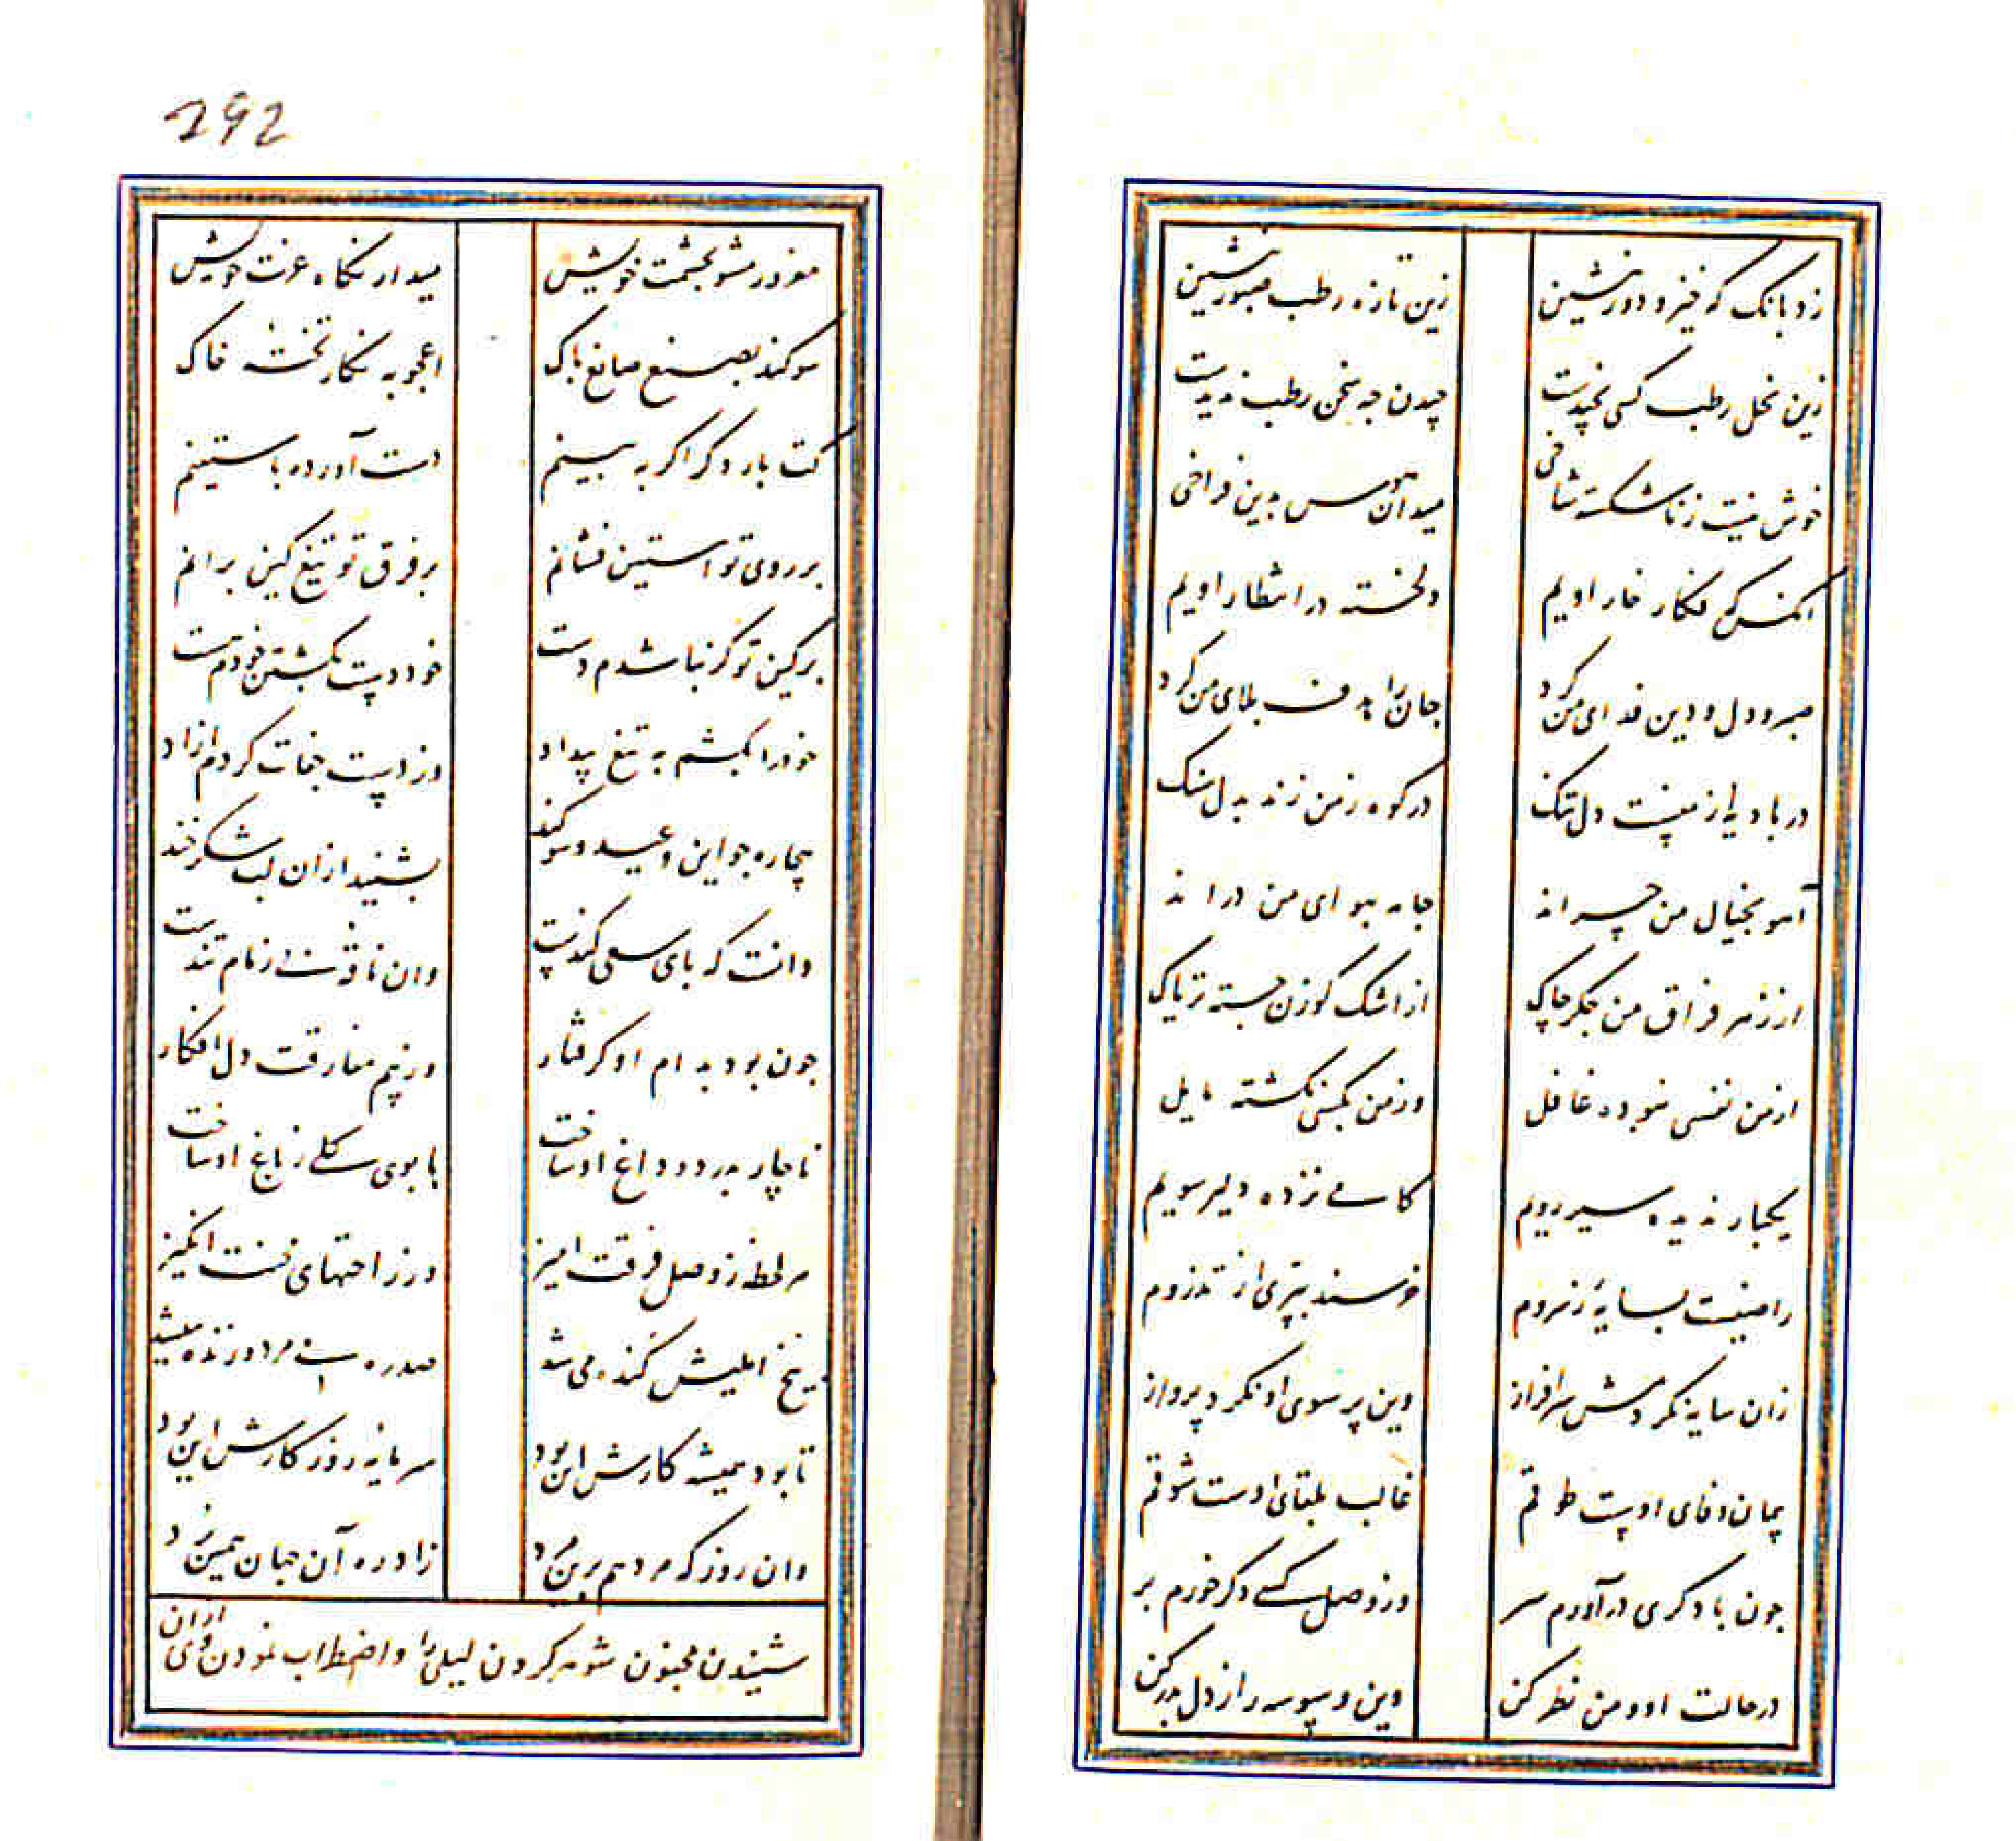 زد بانک که خیز و دور بنشین
زین تازه رطب صبور بنشین
زین نخل رطب کسی نچیدست
چیدن چه سخن رطب ندیدست
خوش نیست ز ناشکسته شاخی
میدان هوس بدین فراخی
انکس که فکار خار اویم
دلخسته در انتظار اویم
صبر و دل و دین فدای من کرد
جان را هدف بلای من کرد
در بادیه از منست دل تنک
در کوه ز من زند بدل سنک
آهو بخیال من چراند
جامه بهوای من دراند
از زهر فراق من جکر چاک
از اشک کوزن جسته تریاک
از من نفسی نبوده غافل
وز من بکسی نکشته مایل
یکبار ندیده سیر رویم
کامی نزده دلیر سویم
راضیست بسایهٔ ز سروم
خرسند بپری از تذروم
زان سایه نکردمش سرافراز
وین پر سوی او نکرد پرواز
پیمان وفای اوست طوقم
غالب بلقای اوست شوقم
چون با دکری در آورم سر
وز وصل کسی دکر خورم بر
در حالت او و من نظر کن
وین وسوسه را ز دل بدر کن
292
مغرور مشو بحشمت خویش
میدار نکاه عزت خویش
سوکند بصنع صانع پاک
اعجوبه نکار تخته خاک
کت بار دکر اکر ببینم
دست آورده باستینم
بر روی تو استین فشانم
بر فرق تو تیغ کین برانم
بر کین تو کر نباشدم دست
خود دست بکشتن خودم هست
خود را بکشم به تیغ بیداد
وز دست جفات کردم ازاد
بیچاره چو این وعید و سوکند
بشنید ازان لب شکرخند
دانست که پای سعی کندست
وان ناقه زمام تندست
چون بود بدام او کرفتار
وز بیم مفارقت دل افکار
ناچار بدرد و داغ او ساخت
با بوی کلی ز باغ او ساخت
هر لحظه ز وصل فرقت امیز
وز راحتهای محنت انکیز
بیخ املیش کنده می شد
صدره مرد و زنده میشد
تا بود همیشه کارش این بود
سرمایه روزکارش این بود
وان روز که مرد هم برین مرد
زاد ره آن جهان همین برد
شنیدن مجنون شوهر کردن لیلی را و اضطراب نمودن وی ازان